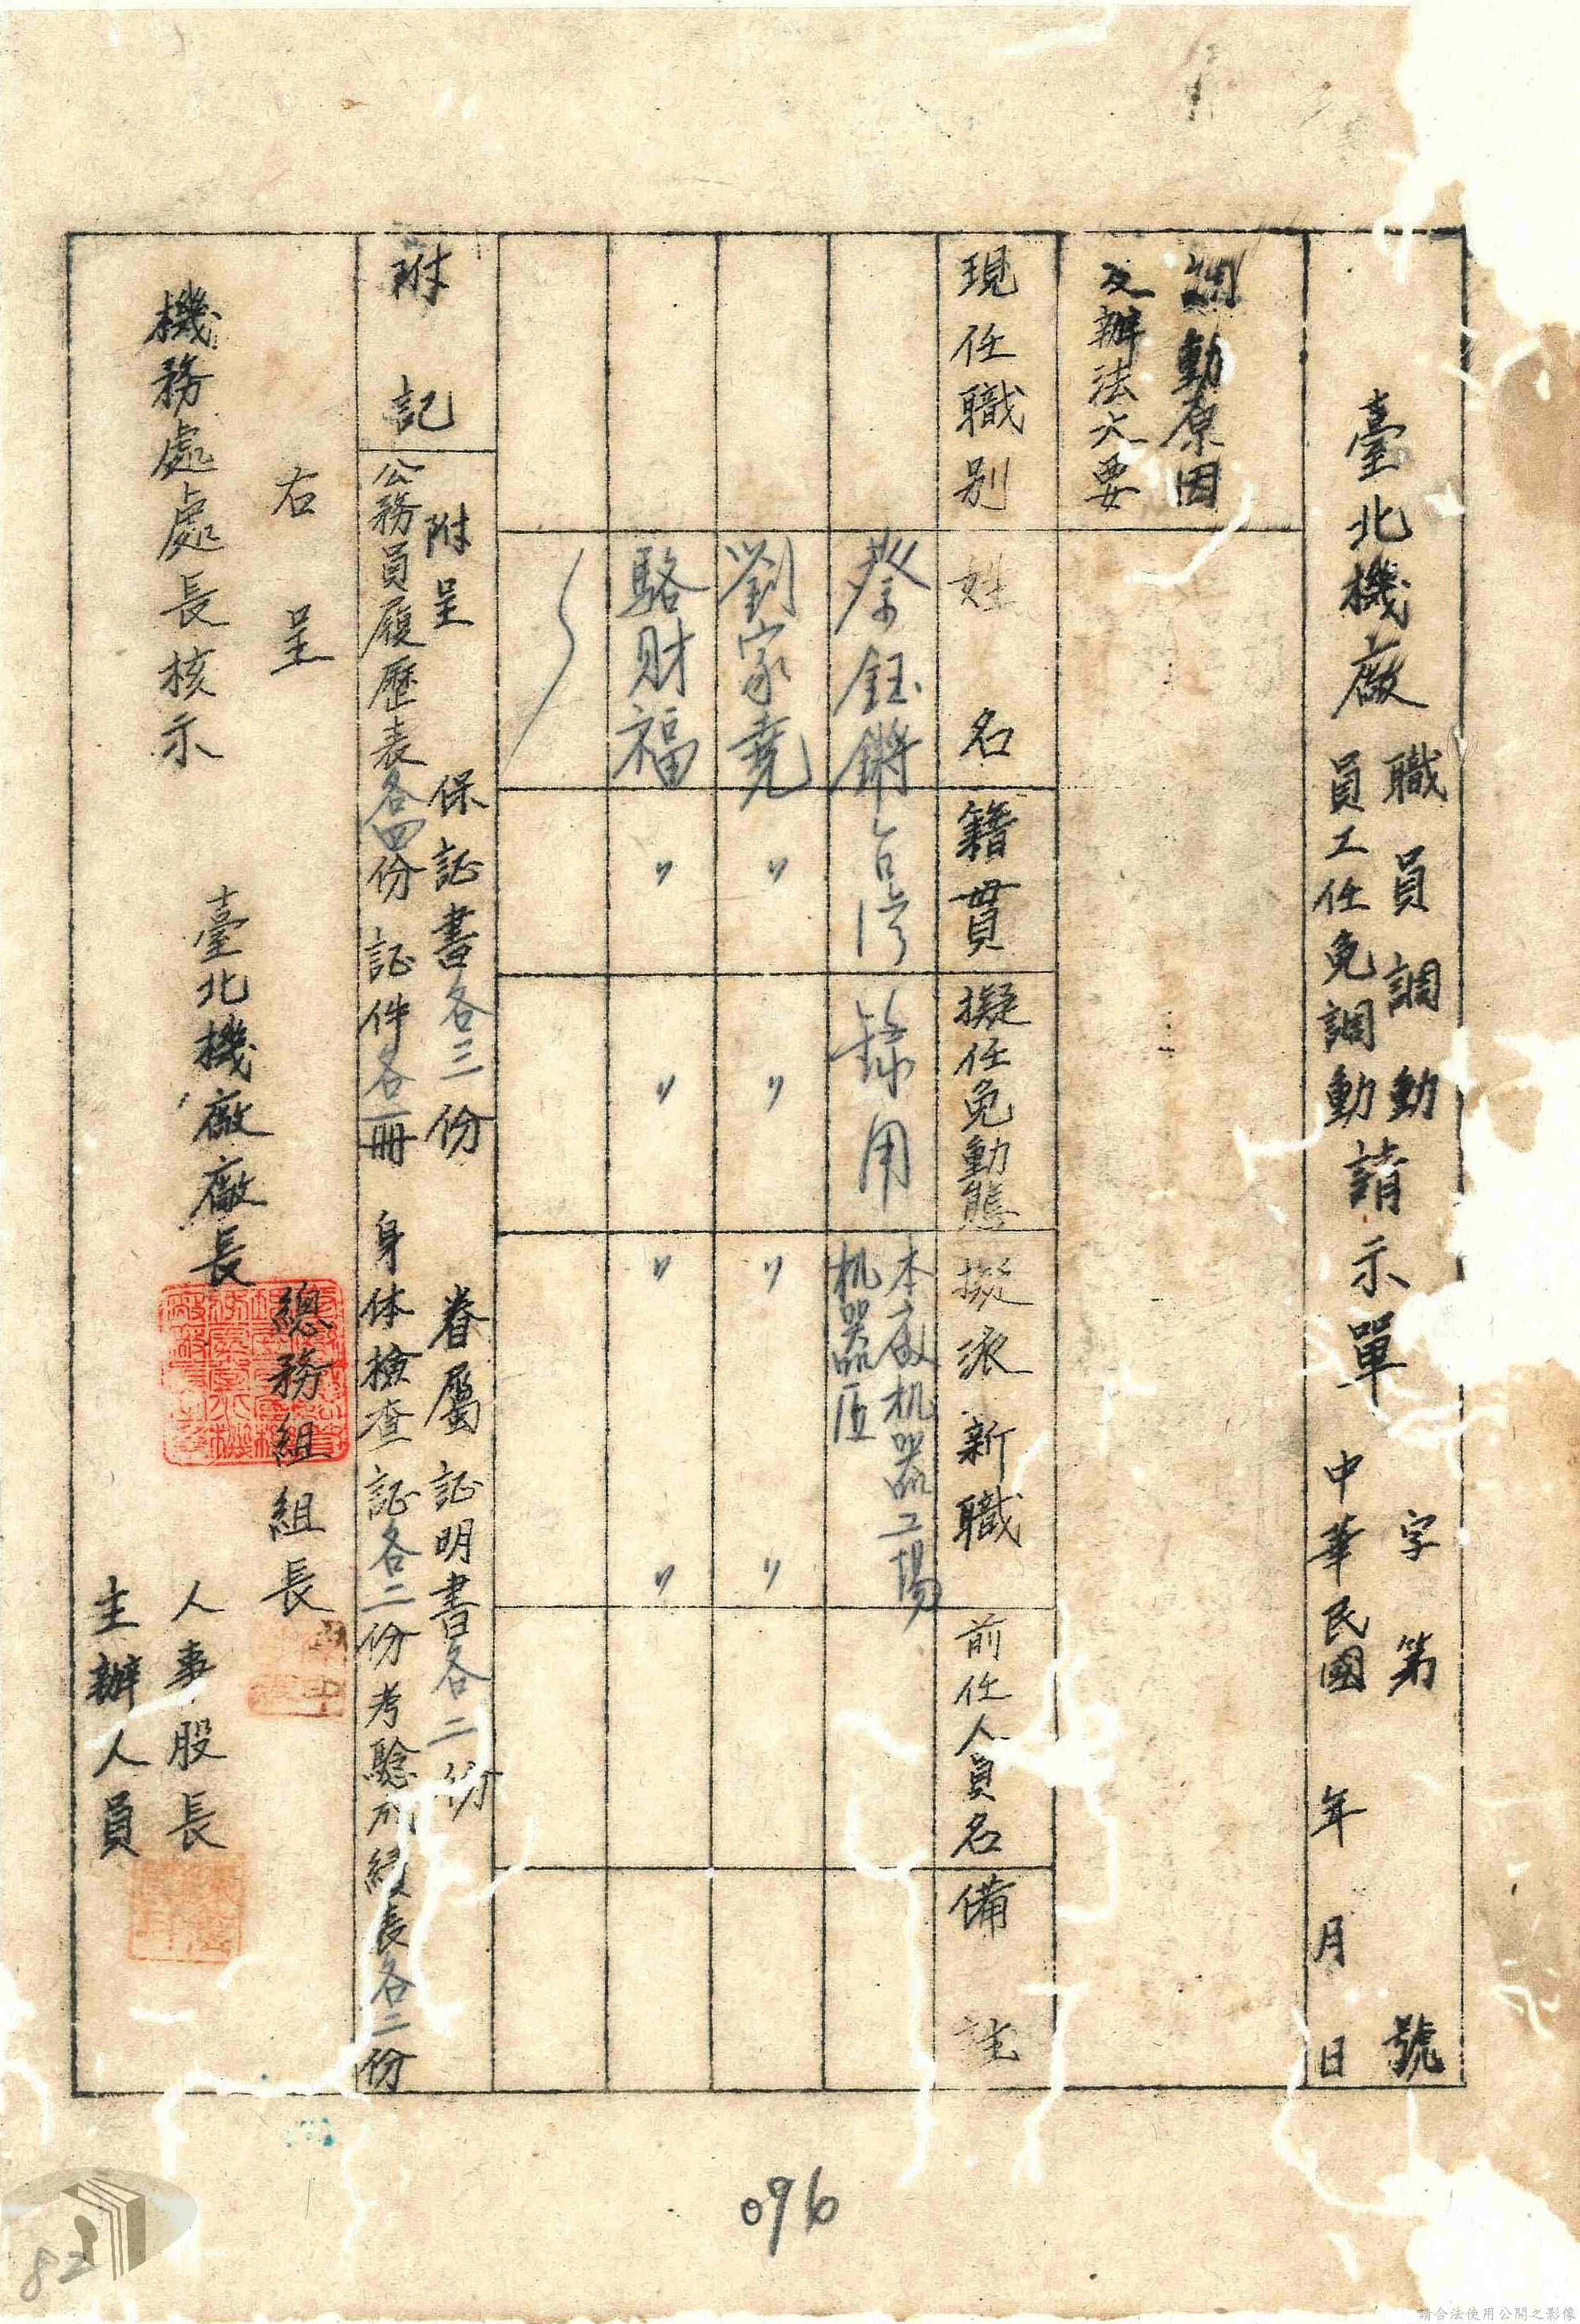 臺北機廠
職員調動
員工任免調動
請示單
字第 號
中華民國 年 月 日
調動原因
及辦法大要
現任職別
姓名
籍貫
擬任免動態
擬派新職
前任人員名
備註
蔡鈺鏘
台湾
錄用
本廠机器工場
机器匠
劉家堯
〃
〃
〃 〃
駱財福
〃
〃
〃 〃
附記
附呈 保証書各三份 眷屬証明書各二份
公務員履歷表各四份 証件各一冊 身体檢查証各二份 考驗成績表各二份
右呈
機務處處長核示
臺北機廠廠長
總務組組長
人事股長
主辦人員
096
82
請合法使用公開之影像